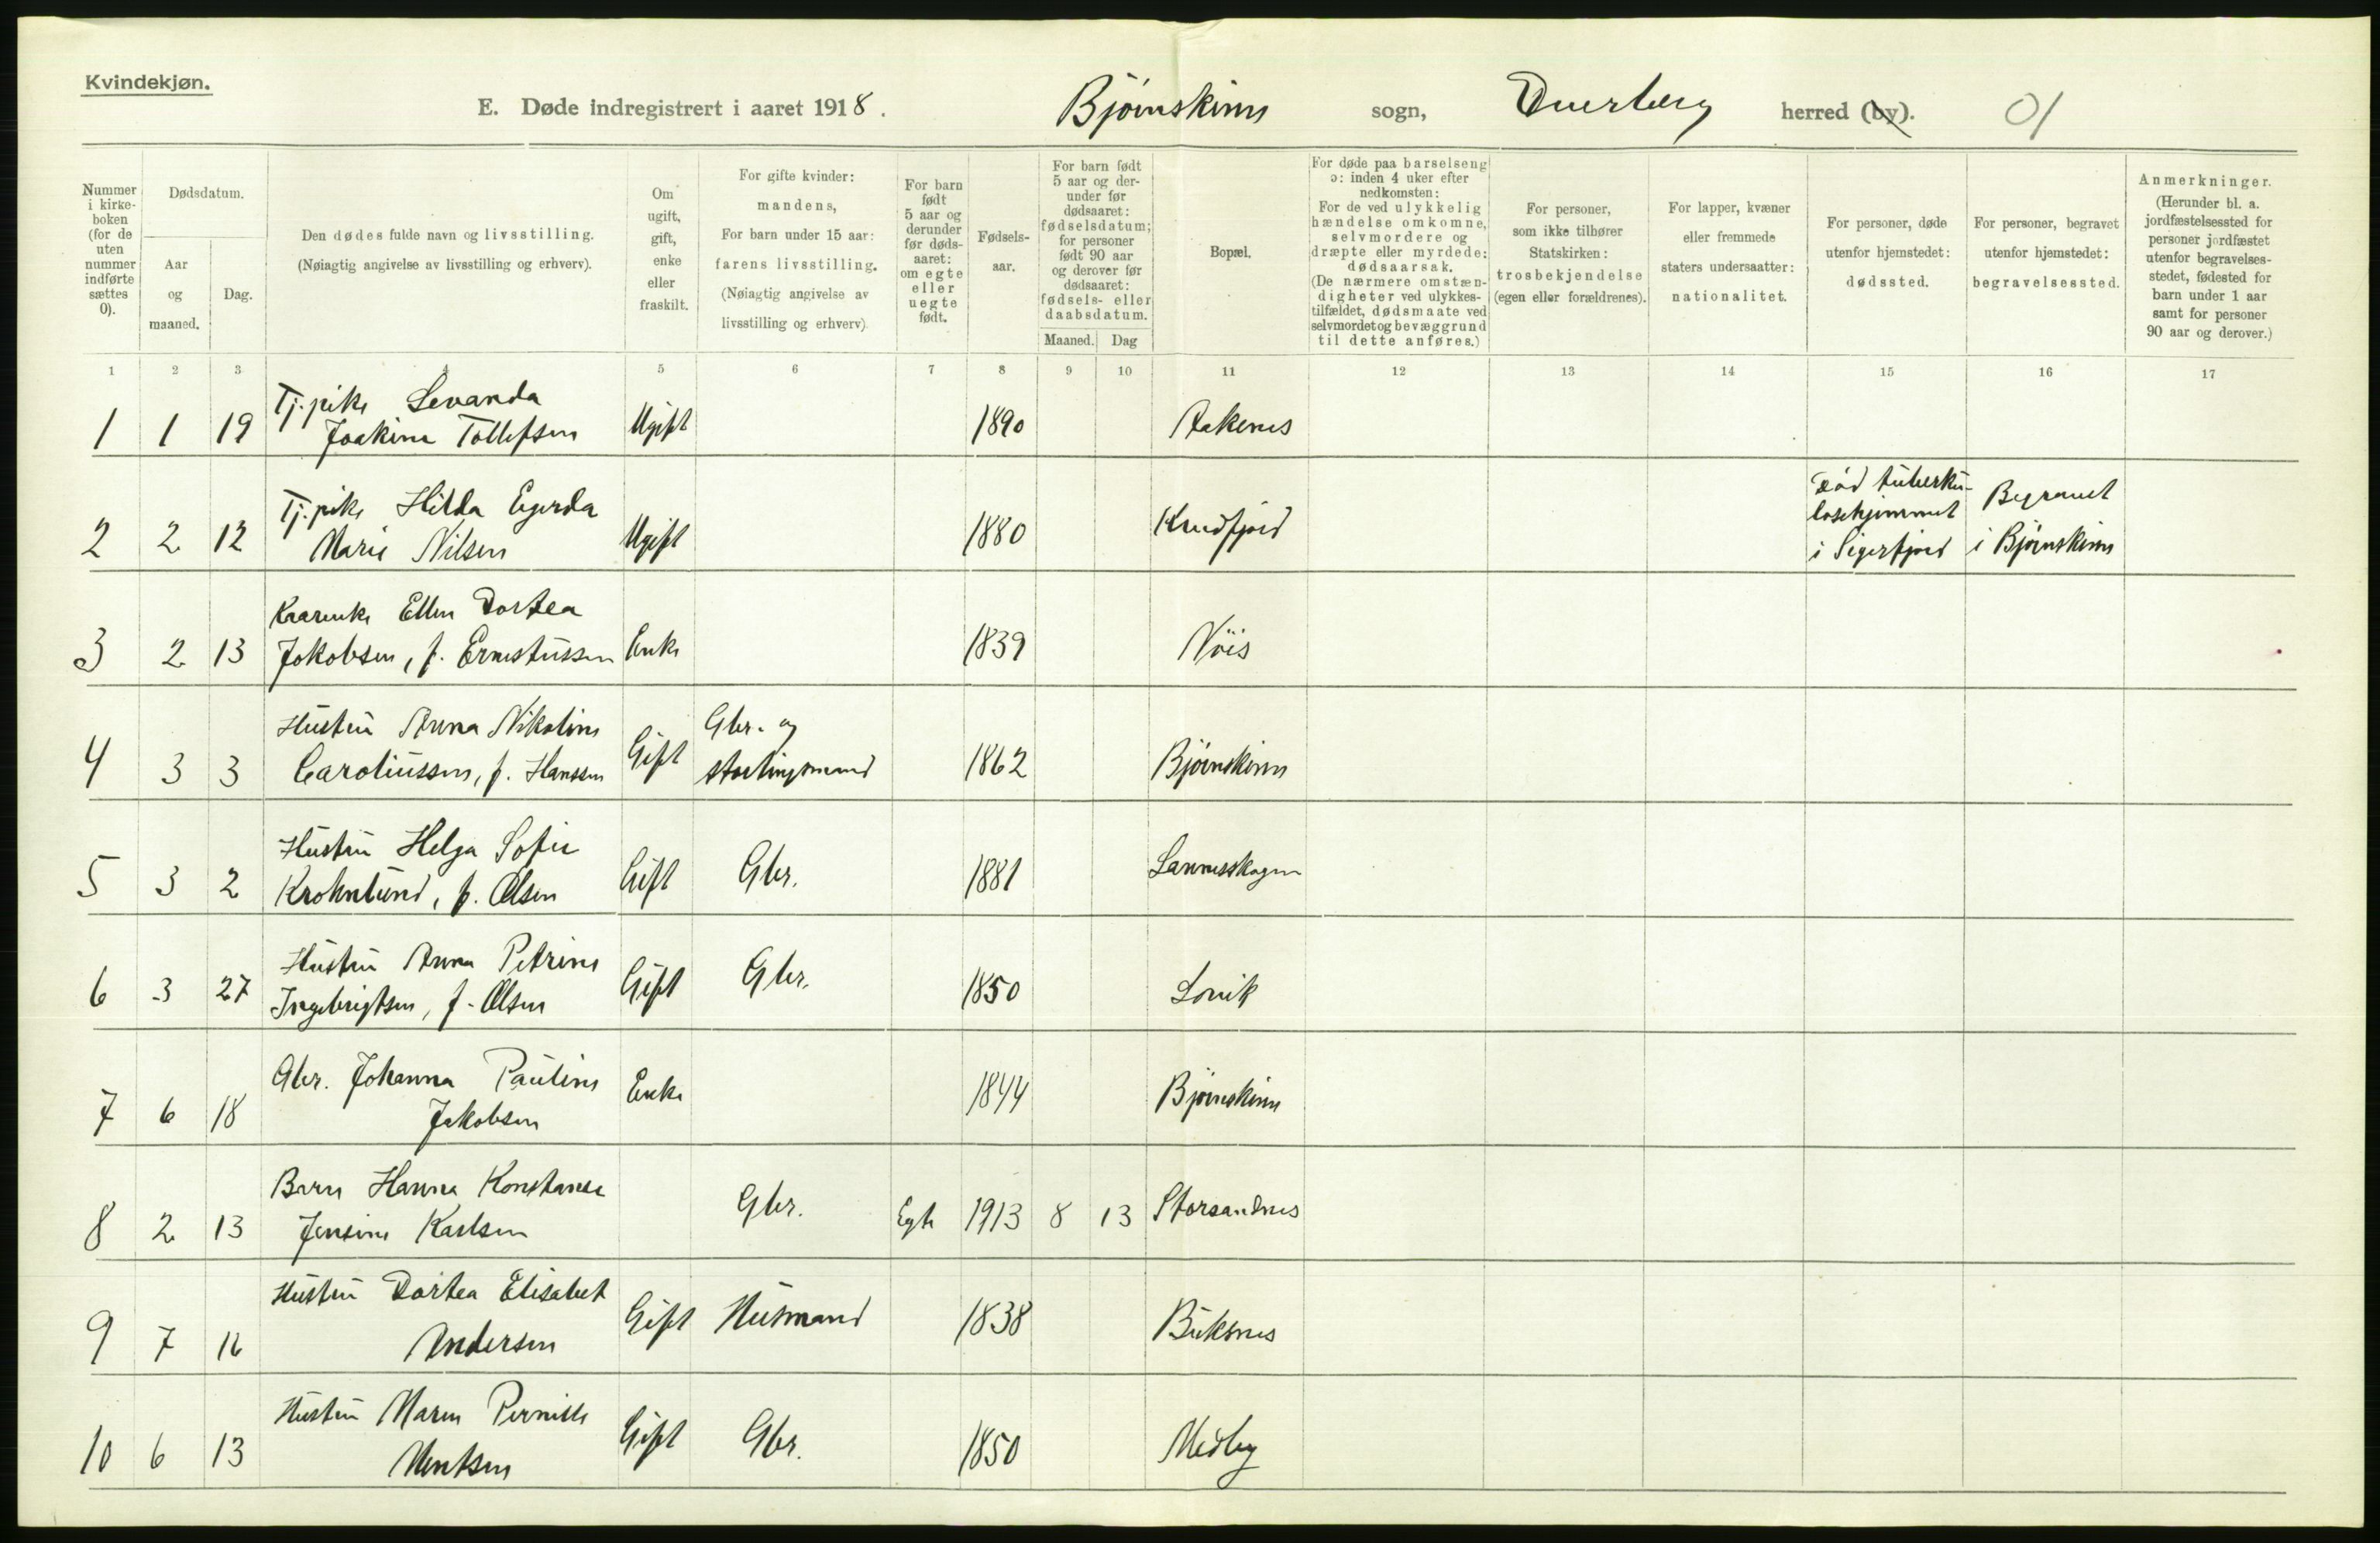 Kvindekjøn.
E. Døde indregistrert i aaret 1918. Bjørnskinn sogn, Dverberg herred (by). 01
Nummer i kirkeboken (for de uten nummer indførte sættes 0).
Dødsdatum.
Aar og maaned.
Dag.
Den dødes fulde navn og livsstilling.
(Nøiagtig angivelse av livsstilling og erhverv).
Om ugift, gift, enke eller fraskilt.
For gifte kvinder: mandens,
For barn under 15 aar: farens livsstilling.
(Nøiagtig angivelse av livsstilling og erhverv)
For barn født 5 aar og derunder før dødsaaret: om egte eller uegte født.
Fødselsaar.
For barn født 5 aar og derunder før dødsaaret: fødselsdatum; for personer født 90 aar og derover før dødsaaret: fødsels- eller daabsdatum.
Maaned. Dag
Bopæl.
For døde paa barselseng ɔ: inden 4 uker efter nedkomsten:
For de ved ulykkelig hændelse omkomne, selvmordere og dræpte eller myrdede: dødsaarsak.
(De nærmere omstændigheter ved ulykkestilfældet, dødsmaate ved selvmordet og bevæggrund til dette anføres.)
For personer, som ikke tilhører Statskirken: trosbekjendelse (egen eller forældrenes).
For lapper, kvæner eller fremmede staters undersaatter: nationalitet.
For personer, døde utenfor hjemstedet: dødssted.
For personer, begravet utenfor hjemstedet: begravelsessted.
Anmerkninger.
(Herunder bl. a. jordfæstelsessted for personer jordfæstet utenfor begravelsesstedet, fødested for barn under 1 aar samt for personer 90 aar og derover.)
1 2 3 4 5 6 7 8 9 10 11 12 13 14 15 16 17
Tj.pike Levanda
1 1 19 Joakine Tollefsen Ugift 1890 Aakenes
Tj.pike Hilda Egerda
2 2 12 Marie Nilsen Ugift 1880 Knudfjord
Død tuberku-
losehjemmet
i Sigerfjord
Begravet
i Bjørnskinn
Kaarenke Ellen Dortea
3 2 13 Jakobsen, f. Ernestussen Enke 1839 Nöis
Hustru Anna Nikoline
4 3 3 Caroliussen, f. Hanssen Gift Gbr. og stortingsmand 1862 Bjørnskinn
Hustru Helga Sofie
5 3 2 Krohnlund, f. Olsen Gift Gbr. 1881 Lannesskogen
Hustru Anna Petrine
6 3 27 Ingebrigtsen, f. Olsen Gift Gbr. 1850 Lovik
Gbr. Johanna Pauline
7 6 18 Jakobsen Enke 1844 Bjørnskinn
Barn Hanna Konstanse
8 2 13 Jensine Karlsen Gbr. Egte 1913 8 13 Storsandnes
Hustru Dortea Elisabet
9 7 16 Andersen Gift Husmand 1838 Buksnes
Hustru Maren Pernille
10 6 13 Mentsen Gift Gbr. 1850 Medby